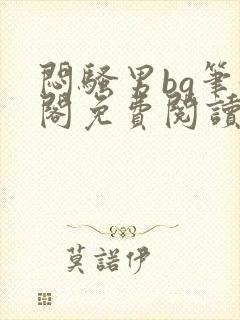 悶騷男bg筆
閣免費閱讀
莫諾伊